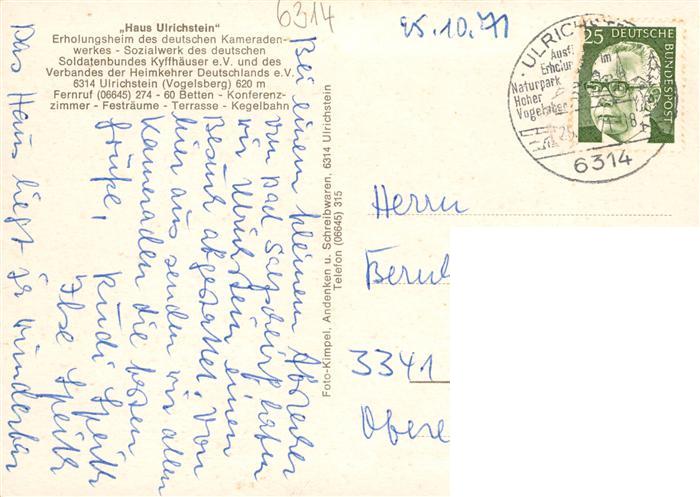 6314
„Haus Ulrichstein"
Erholungsheim des deutschen Kameraden-
werkes - Sozialwerk des deutschen
Soldatenbundes Kyffhäuser e.V. und des
Verbandes der Heimkehrer Deutschlands e.V.
6314 Ulrichstein (Vogelsberg) 620 m
Fernruf (06645) 274 - 60 Betten - Konferenz-
zimmer - Festräume - Terrasse - Kegelbahn
25.10.71
Bei einem kleinem Abstecher
von Bad Salzhausen haben
wir Ulrichstein einen
Besuch abgestattet. Von
hier aus senden wir allen
Kameraden die besten
Grüße,
Rudi Speith
Ilse Speith
Das Haus liegt ja wunderbar
Foto-Kimpel, Andenken u. Schreibwaren, 6314 Ulrichstein
Telefon (06645) 315
ULRICHSTE
im
Erholun
Naturpark
Hoher
Vogelsber
6314
25
DEUTSCHE
BUNDESPOST
Herrn
3341